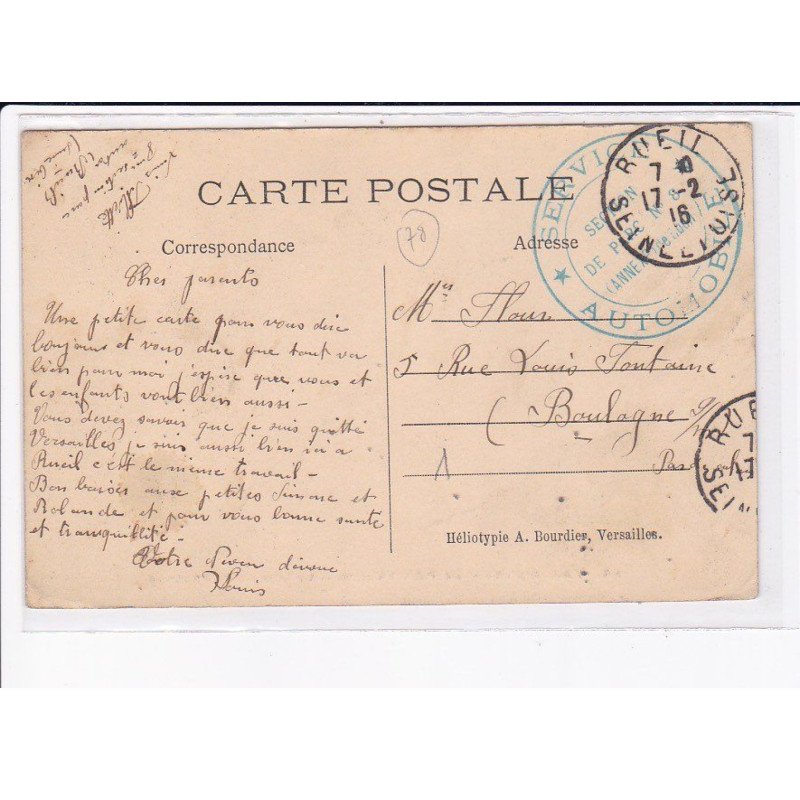 CARTE POSTALE
Correspondance
Adresse
78
Chers parents
Une petite carte pour vous dire
bonjour et vous dire que tout va
bien pour moi j'espère que vous et
les enfants vont bien aussi -
Vous devez savoir que je suis quitté
Versailles je suis aussi bien ici a
Rueil c'est le même travail -
Bon baisers aux petites Simone et
Rolande et pour vous bonne santé
et tranquillité -
Votre dévoué
Louis
Mr
5 Rue Louis Fontaine
(Boulogne s/
Pas
1
Héliotypie A. Bourdier, Versailles.
SERVICE AUTOMOBILE
SECTION
DE PARC N° 8
(ANNEXE
RUEIL
7
17 -2
16
SEINE ET OISE
RUE
7
17
SEI